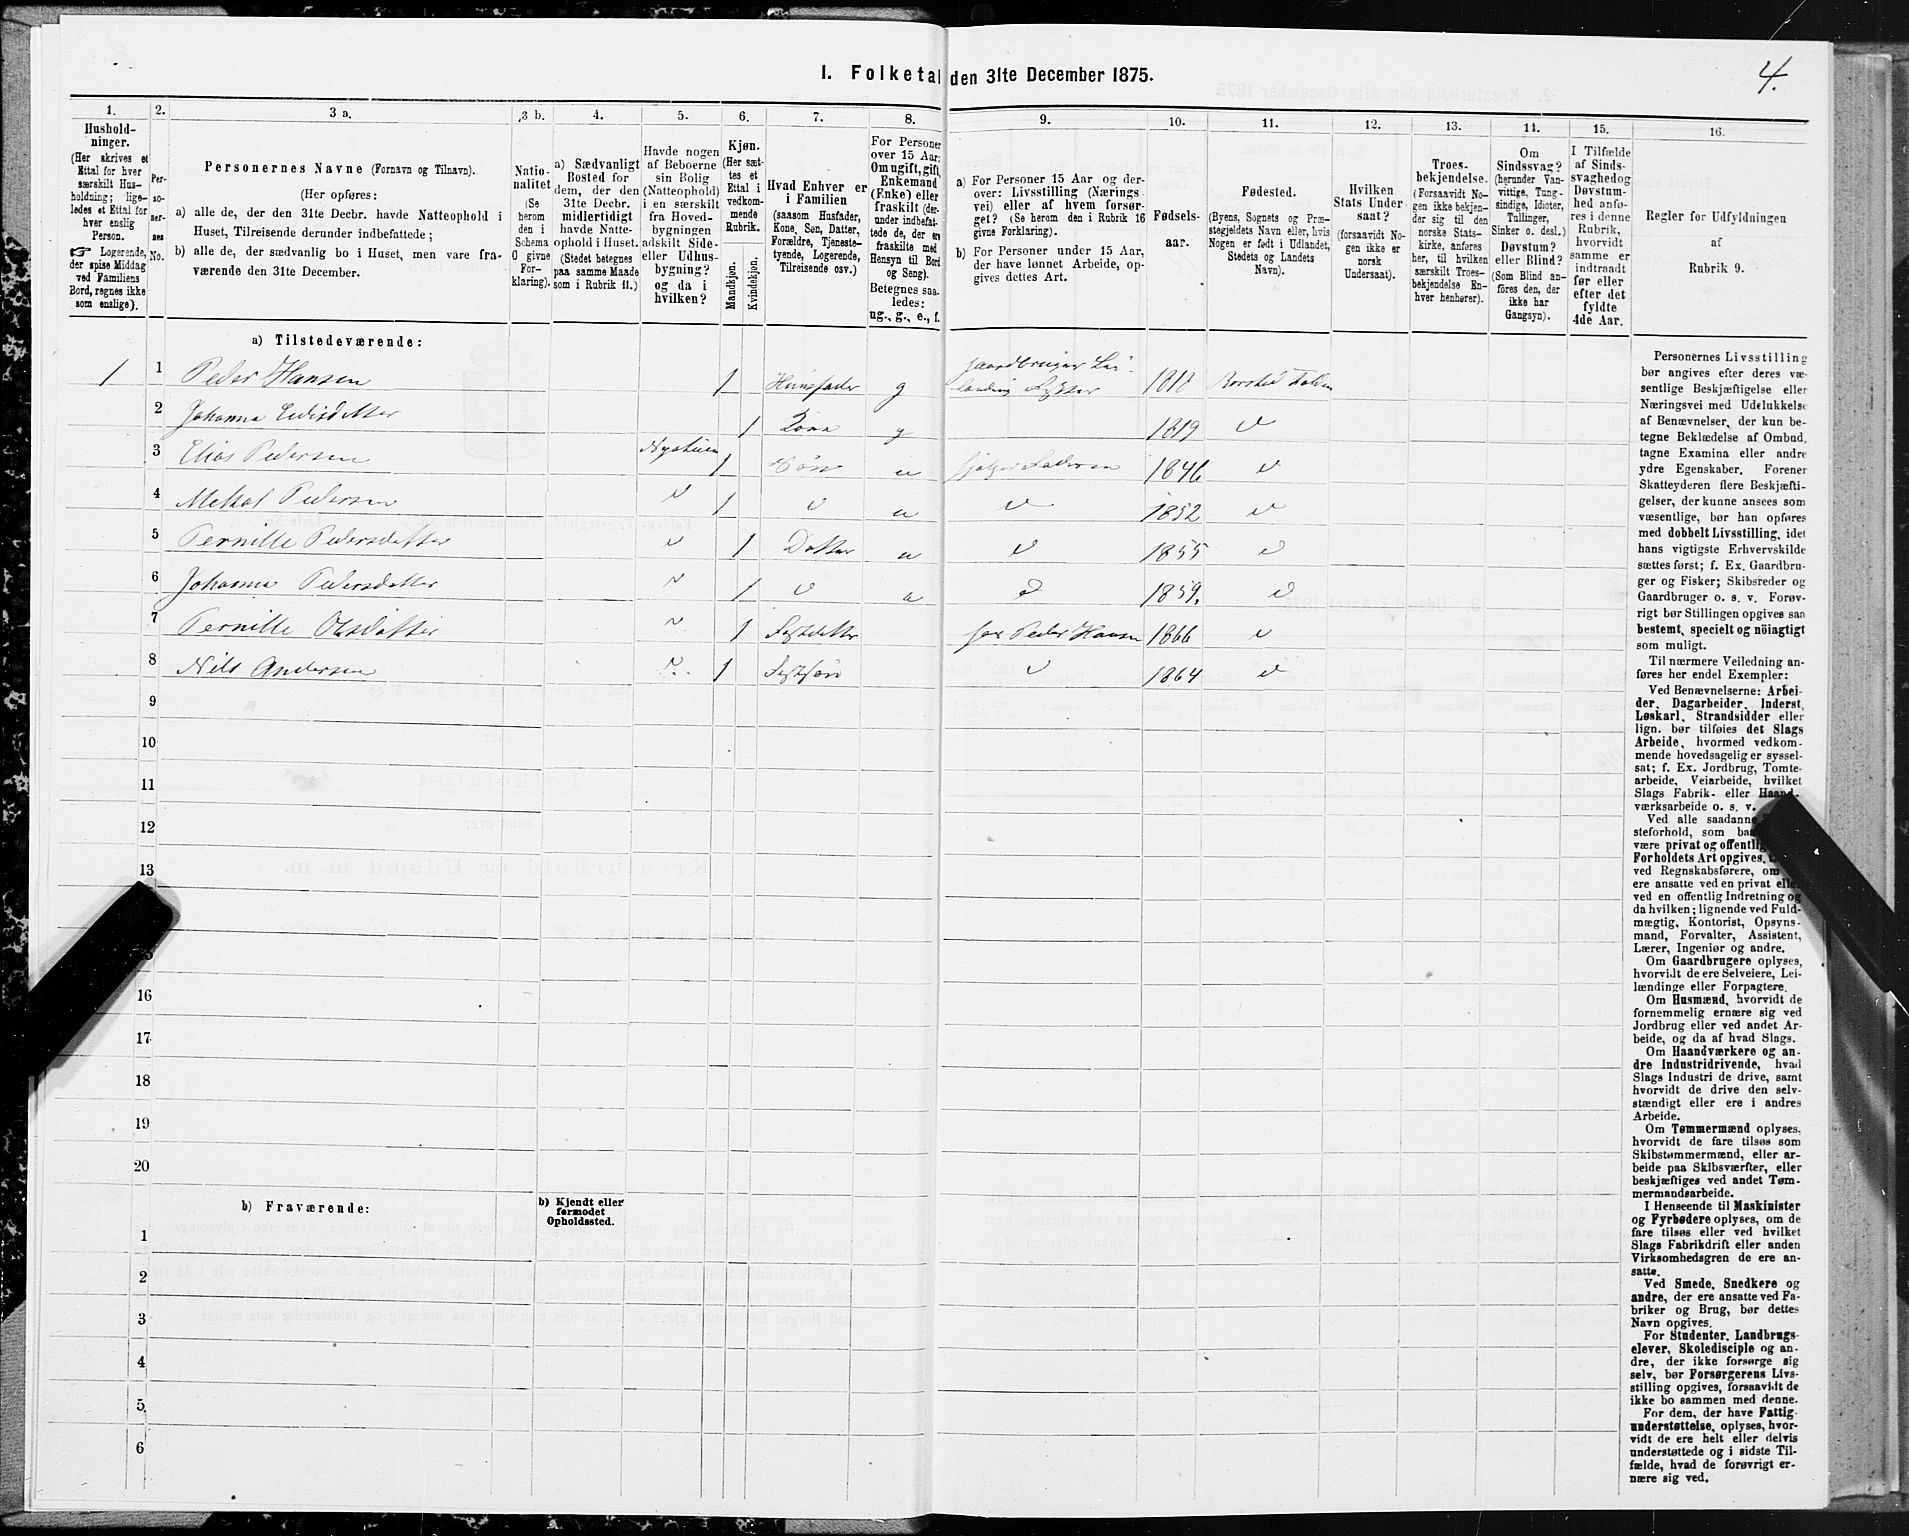 1. Folketal den 31te December 1875.
4.
1. 2. 3 a. 3 b. 4. 5. 6. 7. 8. 9. 10. 11. 12. 13. 14. 15. 16.
Hushold-
ninger.
(Her skrives et
Ettal for hver
særskilt Hus-
holdning; lige-
ledes et Ettal for
hver enslig
Person.
☞ Logerende,
der spise Middag
ved Familiens
Bord, regnes ikke
som enslige).
Per-
so-
ner-
nes
No.
Personernes Navne (Fornavn og Tilnavn).
(Her opføres:
a) alle de, der den 31te Decbr. havde Natteophold i
Huset, Tilreisende derunder indbefattede;
b) alle de, der sædvanlig bo i Huset, men vare fra-
værende den 31te December.
Natio-
nalitet
(Se
herom
den i
Schema
O givne
For-
klaring).
a) Sædvanligt
Bosted for
dem, der den
31te Decbr.
midlertidigt
havde Natte-
ophold i Huset.
(Stedet betegnes
paa samme Maade
som i Rubrik 11.)
Havde nogen
af Beboerne
sin Bolig
(Natteophold)
i en særskilt
fra Hoved-
bygningen
adskilt Side-
eller Udhus-
bygning?
og da i
hvilken?
Kjøn.
(Her sæt-
tes et
Ettal i
vedkom-
mende
Rubrik.
Mandkjøn.
Kvindekjøn.
Hvad Enhver er
i Familien
(saasom Husfader,
Kone, Søn, Datter,
Forældre, Tjeneste-
tyende, Logerende,
Tilreisende osv.)
For Personer
over 15 Aar:
Om ugift, gift,
Enkemand
(Enke) eller
fraskilt (der-
under indbefat-
tede de, der ere
fraskilte med
Hensyn til Bord
og Seng).
Betegnes saa-
ledes:
ug., g., e., f.
a) For Personer 15 Aar og der-
over: Livsstilling (Nærings-
vei) eller af hvem forsør-
get? (Se herom den i Rubrik 16
givne Forklaring).
b) For Personer under 15 Aar,
der have lønnet Arbeide, op-
gives dettes Art.
Fødsels-
aar.
Fødested.
(Byens, Sognets og Præ-
stegjeldets Navn eller, hvis
Nogen er født i Udlandet,
Stedets og Landets
Navn).
Hvilken
Stats Under-
saat?
(forsaavidt No-
gen ikke er
norsk
Undersaat).
Troes-
bekjendelse.
(Forsaavidt No-
gen ikke bekjen-
der sig til den
norske Stats-
kirke, anføres
her, til hvilken
særskilt Troes-
bekjendelse En-
hver henhører).
Om
Sindssvag?
(herunder Van-
vittige, Tung-
sindige, Idioter,
Tullinger,
Sinker o. desl.)
Døvstum?
eller Blind?
(Som Blind an-
føres den, der
ikke har
Gangsyn).
I Tilfælde
af Sinds-
svaghed og
Døvstum-
hed anfø-
res i denne
Rubrik,
hvorvidt
samme er
indtraadt
før eller
efter det
fyldte
4de Aar.
Regler for Udfyldningen
af
Rubrik 9.
a) Tilstedeværende:
1 1 Peder Hansen 1 Huusfader g Gaardbruger Lei- 1818
2 Johanna 1 Kone g 1819 "
3 Elias Pedersen Nystuen 1 Søn u hjelper Faderen 1846 "
4 Mekal Pedersen " 1 " u " 1852 "
5 Pernille Pedersdatter " 1 Datter u " 1855 "
6 Johanna Pedersdatter " 1 " u " 1859. "
7 Pernille Olsdatter " 1 Fostdatter hos Peder Hansen 1866 "
8 Nils Andersen " 1 Fostsøn " 1864 "
9
10
11
12
13
15
16
17
18
19
20
b) Fraværende:
b) Kjendt eller
formodet
Opholdssted.
1
2
3
4
5
6
Personernes Livsstilling
bør angives efter deres væ-
sentlige Beskjæftigelse eller
Næringsvei med Udelukkelse
af Benævnelser, der kun be-
tegne Beklædelse af Ombud,
tagne Examina eller andre
ydre Egenskaber. Forener
Skatteyderen flere Beskjæfti-
gelser, der kunne ansees som
væsentlige, bør han opføres
med dobbelt Livsstilling, idet
hans vigtigste Erhvervskilde
sættes først; f. Ex. Gaardbru-
ger og Fisker; Skibsreder og
Gaardbruger o. s. v. Forøv-
rigt bør Stillingen opgives saa
bestemt, specielt og nöiagtigt
som muligt.
Til nærmere Veiledning an-
føres her endel Exempler:
Ved Benævnelserne: Arbei-
der, Dagarbeider, Inderst,
Løskarl, Strandsidder eller
lign. bør tilføies det Slags
Arbeide, hvormed vedkom-
mende hovedsagelig er syssel-
sat; f. Ex. Jordbrug, Tomte-
arbeide, Veiarbeide, hvilket
Slags Fabrik- eller Haand-
værksarbeide o. s. v.
Ved alle saadanne
steforhold, som
være privat og offentlig
Forholdets Art opgives,
ved Regnskabsførere, om
ere ansatte ved en privat eller
ved en offentlig Indretning og
da hvilken; lignende ved Fuld-
mægtig, Kontorist, Opsyns-
mand, Forvalter, Assistent,
Lærer, Ingeniør og andre.
Om Gaardbrugere oplyses,
hvorvidt de ere Selveiere, Lei-
lændinge eller Forpagtere.
Om Husmænd, hvorvidt de
fornemmelig ernære sig ved
Jordbrug eller ved andet Ar-
beide, og da af hvad Slags.
Om Haandværkere og an-
dre Industridrivende, hvad
Slags Industri de drive, samt
hvorvidt de drive den selv-
stændigt eller ere i andres
Arbeide.
Om Tømmermænd oplyses,
hvorvidt de fare tilsøs som
Skibstømmermænd, eller ar-
beide paa Skibsværfter, eller
beskjæftiges ved andet Tøm-
mermandsarbeide.
I Henseende til Maskinister
og Fyrbødere oplyses, om de
fare tilsøs eller ved hvilket
Slags Fabrikdrift eller anden
Virksomhedsgren de ere an-
satte.
Ved Smede, Snedkere og
andre, der ere ansatte ved Fa-
briker og Brug, bør dettes
Navn opgives.
For Studenter, Landbrugs-
elever, Skoledisciple og an-
dre, der ikke forsørge sig
selv, bør Forsørgerens Livs-
stilling opgives, forsaavidt de
ikke bo sammen med denne.
For dem, der have Fattig-
understøttelse, oplyses, hvor-
vidt de ere helt eller delvis
understøttede og i sidste Til-
fælde, hvad de forøvrigt er-
nære sig ved.